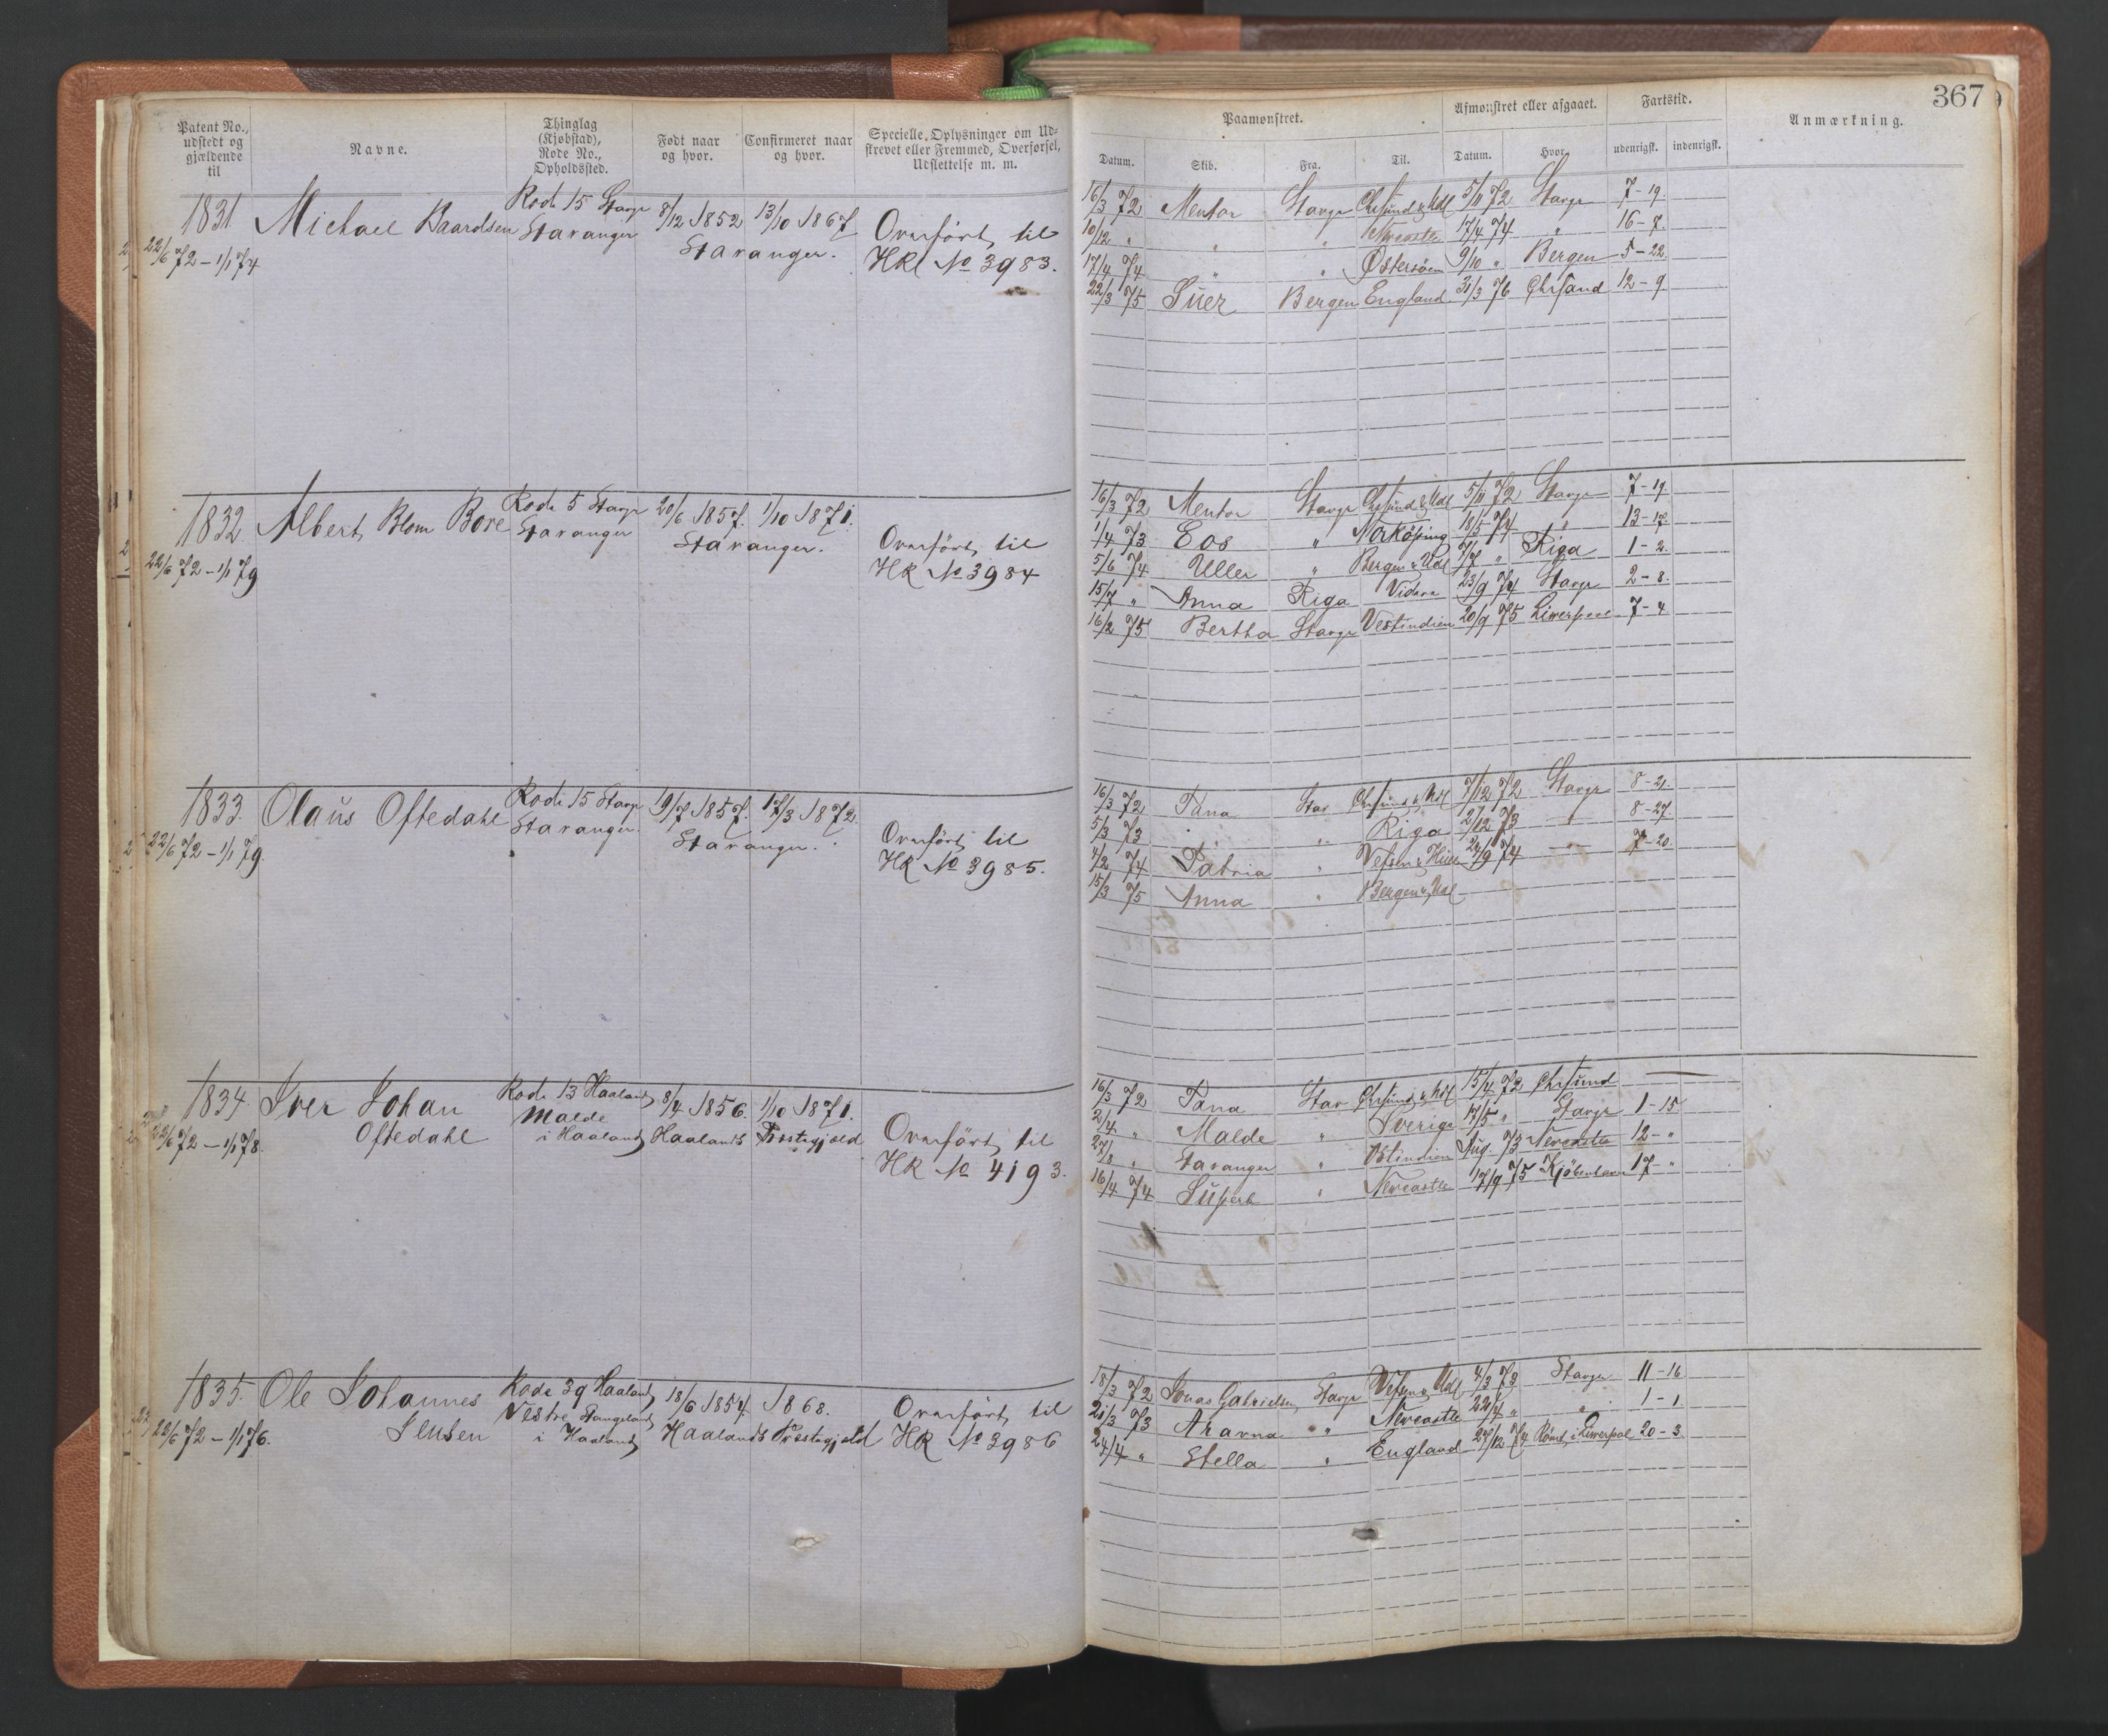 367
Patent No., udstedt og gjældende til
Navne.
Thinglag (Kjøbstad), Rode No., Opholdssted.
Født naar og hvor.
Confirmeret naar og hvor.
Specielle Oplysninger om Udstrevet eller Fremmed, Overførsel, Udslettelse m. m.
Paamønstret.
Afmønstret eller afgaaet.
Fartstid.
Anmærkning.
Datum. Skib. Fra. Til. Datum. Hvor. udenrigsk. indenrigsk.
1831. Michael Baardsen Rode 15 Stavgr 8/12 1852 13/10 1867
22/6 72 – 1/1 74 Stavanger Stavanger. Overført til
HRl No 3983.
16/3 72 Mentor Stavgr Chrsund & Udl 5/11 72 Stavgr 7-19.
10/12 " " " Newcastle 17/4 74 " 16-7.
17/4 74 " " Østersøen 9/10 " Bergen 5-22.
22/3 75 Suez Bergen England 31/3 76 Chrsand 12-9.
1832. Albert Blom Bore Rode 5 Stavgr 20/6 1857. 1/10 1871.
22/6 72 – 1/1 79 Stavanger Stavanger. Overført til
HR No 3984
16/3 72 Mentor Stavgr Chrsund & Udl 5/11 72 Stavgr 7-19.
1/4 73 Eos " Norköping 18/5 74 " 13-17.
5/6 74 Uller " Bergen & Udl 7/7 " Riga 1-2.
15/7 " Anna Riga 23/9 74 Stavgr 2-8.
16/2 75 Bertha Stavgr Vestindien 20/9 75 Liverpool 7-4
1833. Olaus Oftedahl Rode 15 Stavgr 19/7 1857. 17/3 1872.
22/6 72 – 1/1 79. Stavanger. Stavanger. Overført til
HR No 3985.
16/3 72 Pana Stav Chrsund & Udl 7/12 72 Stavgr 8-21.
5/3 73 " " Riga 2/12 73 " 8-27.
4/2 74 Patria " Vefsen & 24/9 74 " 7-20.
15/3 75 Anna " Bergen & Udl
1834. Iver Johan Oftedahl Rode 13 Haaland 8/4 1856. 1/10 1871.
22/6 72 – 1/1 78. Malde i Haaland Haalands Præstegjeld Overført til
HR No 4193.
16/3 72 Pana Stav Chrsund & Udl 15/4 72 Chrsund —
2/4 " Malde " Sverige 17/5 " Stavgr 1-15
27/8 " Stavanger " Ostindien Aug. 73 Newcastle 12-"
16/4 74 Superb " Newcastle 17/9 75 Kjöbenhavn 17-"
1835. Ole Johannes Jensen Rode 39 Haaland 18/6 1854. 1868.
22/6 72 – 1/1 76. Vestre Stangeland i Haaland Haalands Præstegjeld Overført til
HR No 3986
18/3 72 Jonas Gabrielsen Stavgr Vefsen & Udl 4/3 73 Stavgr 11-16
21/3 73 Aravna " Newcastle 22/4 " " 1-1.
24/4 " Stella " England 27/12 74 Römt i Liverpool 20-3.